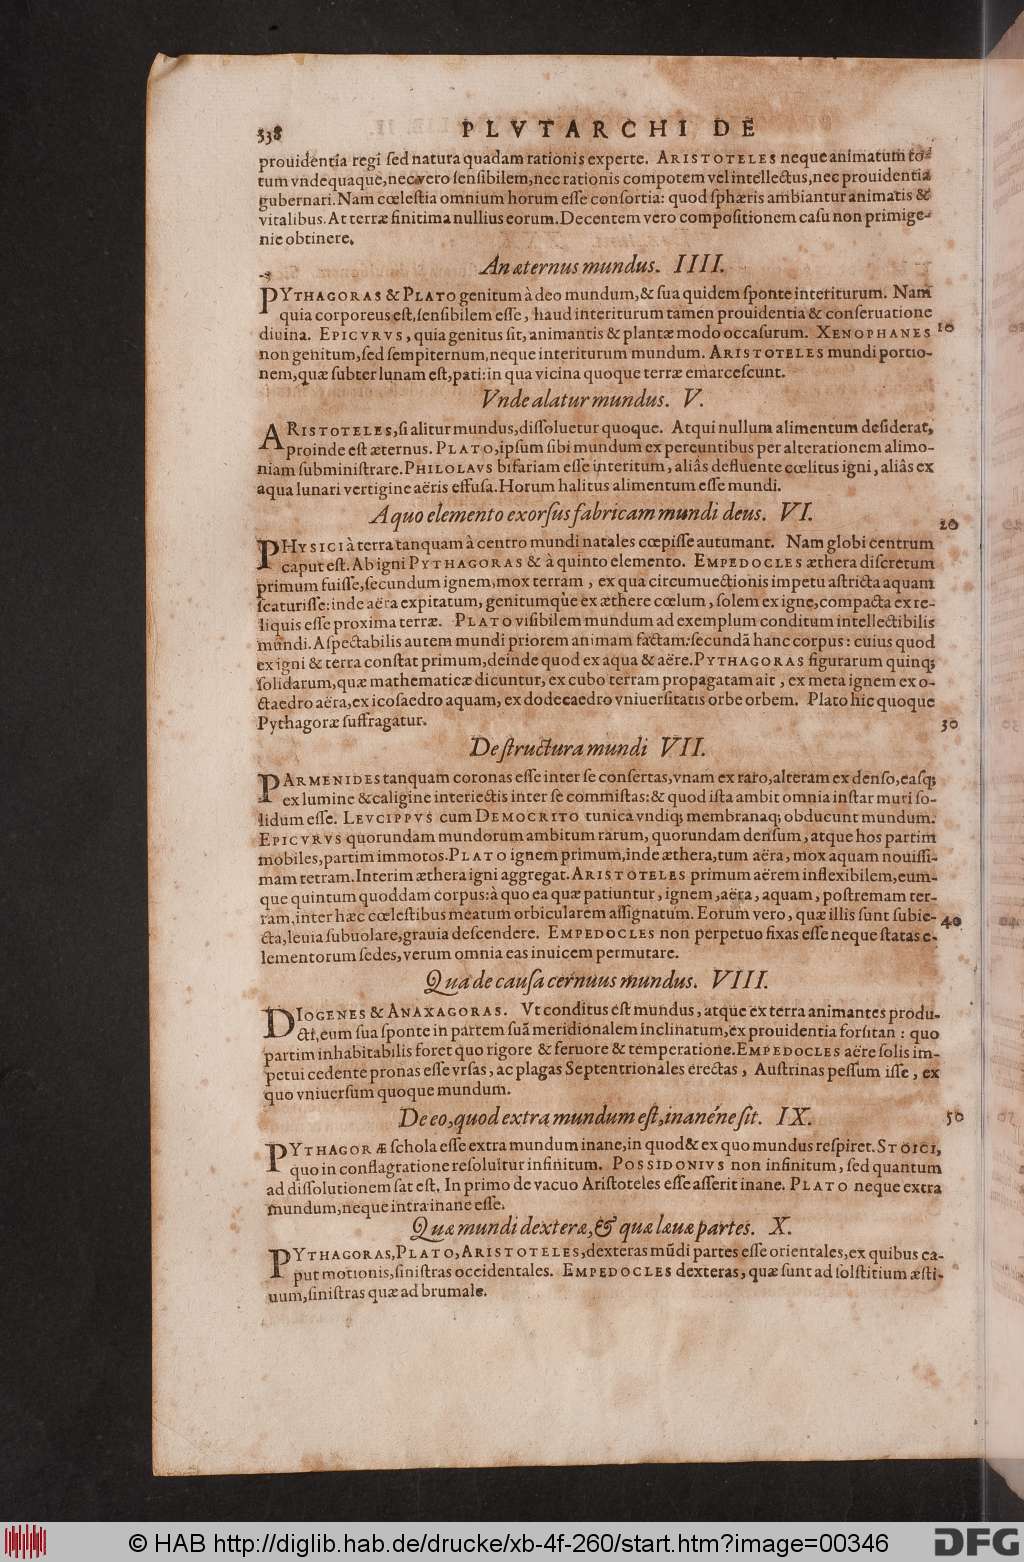 338 PLVTARCHI DE
prouidentia regi ſed natura quadam rationis experte. ARISTOTELES neque animatum to-
tum vndequaque, nec vero ſenſibilem, nec rationis compotem vel intellectus, nec prouidentia
gubernari. Nam cœleſtia omnium horum eſſe conſortia: quod ſphæris ambiantur animatis &
vitalibus. At terræ finitima nullius eorum. Decentem vero compoſitionem caſu non primige-
nie obtinere.
An æternus mundus. IIII.
PYTHAGORAS & PLATO genitum à deo mundum, & ſua quidem ſponte interiturum. Nam
quia corporeus eſt, ſenſibilem eſſe, haud interiturum tamen prouidentia & conſeruatione
diuina. EPICVRVS, quia genitus ſit, animantis & plantæ modo occaſurum. XENOPHANES 10
non genitum, ſed ſempiternum, neque interiturum mundum. ARISTOTELES mundi portio-
nem, quæ ſubter lunam eſt, pati: in qua vicina quoque terræ emarceſcunt.
Vnde alatur mundus. V.
ARISTOTELES, ſi alitur mundus, diſſoluetur quoque. Atqui nullum alimentum deſiderat,
proinde eſt æternus. PLATO, ipſum ſibi mundum ex pereuntibus per alterationem alimo-
niam ſubminiſtrare. PHILOLAVS bifariam eſſe interitum, aliâs defluente cœlitus igni, aliâs ex
aqua lunari vertigine aëris effuſa. Horum halitus alimentum eſſe mundi.
A quo elemento exorſus fabricam mundi deus. VI. 20
PHYSICI à terra tanquam à centro mundi natales cœpiſſe autumant. Nam globi centrum
caput eſt. Ab igni PYTHAGORAS & à quinto elemento. EMPEDOCLES æthera diſcretum
primum fuiſſe, ſecundum ignem, mox terram, ex qua circumuectionis impetu aſtricta aquam
ſcaturiſſe: inde aëra expiratum, genitumque ex æthere cœlum, ſolem ex igne, compacta ex re-
liquis eſſe proxima terræ. PLATO viſibilem mundum ad exemplum conditum intellectibilis
mundi. Aſpectabilis autem mundi priorem animam factam: ſecundã hanc corpus: cuius quod
ex igni & terra conſtat primum, deinde quod ex aqua & aëre. PYTHAGORAS figurarum quinq;
ſolidarum, quæ mathematicæ dicuntur, ex cubo terram propagatam ait, ex meta ignem ex o-
ctaedro aëra, ex icoſaedro aquam, ex dodecaedro vniuerſitatis orbe orbem. Plato hic quoque
Pythagoræ ſuffragatur. 30
De ſtructura mundi VII.
PARMENIDES tanquam coronas eſſe inter ſe conſertas, vnam ex raro, alteram ex denſo, eaſq;
ex lumine & caligine interiectis inter ſe commiſtas: & quod iſta ambit omnia inſtar muri ſo-
lidum eſſe. LEVCIPPVS cum DEMOCRITO tunica vndiq; membranaq; obducunt mundum.
EPICVRVS quorundam mundorum ambitum rarum, quorundam denſum, atque hos partim
mobiles, partim immotos. PLATO ignem primum, inde æthera, tum aëra, mox aquam nouiſſi-
mam terram. Interim æthera igni aggregat. ARISTOTELES primum aërem inflexibilem, eum-
que quintum quoddam corpus: à quo ea quæ patiuntur, ignem, aëra, aquam, poſtremam ter-
ram, inter hæc cœleſtibus meatum orbicularem aſſignatum. Eorum vero, quæ illis ſunt ſubie- 40
cta, leuia ſubuolare, grauia deſcendere. EMPEDOCLES non perpetuo fixas eſſe neque ſtatas e-
lementorum ſedes, verum omnia eas inuicem permutare.
Qua de cauſa cernuus mundus. VIII.
DIOGENES & ANAXAGORAS. Vt conditus eſt mundus, atque ex terra animantes produ-
cti, eum ſua ſponte in partem ſuã meridionalem inclinatum, ex prouidentia forſitan: quo
partim inhabitabilis foret quo rigore & feruore & temperatione. EMPEDOCLES aëre ſolis im-
petui cedente pronas eſſe vrſas, ac plagas Septentrionales erectas, Auſtrinas peſſum iſſe, ex
quo vniuerſum quoque mundum.
De eo, quod extra mundum eſt, inanéne ſit. IX. 50
PYTHAGORÆ ſchola eſſe extra mundum inane, in quod & ex quo mundus reſpiret. STOICI,
quo in conflagratione reſoluitur infinitum. POSSIDONIVS non infinitum, ſed quantum
ad diſſolutionem ſat eſt. In primo de vacuo Ariſtoteles eſſe aſſerit inane. PLATO neque extra
mundum, neque intra inane eſſe.
Quæ mundi dexteræ, & quæ læuæ partes. X.
PYTHAGORAS, PLATO, ARISTOTELES, dexteras mũdi partes eſſe orientales, ex quibus ca-
put motionis, ſiniſtras occidentales. EMPEDOCLES dexteras, quæ ſunt ad ſolſtitium æſti-
uum, ſiniſtras quæ ad brumale.
© HAB http://diglib.hab.de/drucke/xb-4f-260/start.htm?image=00346 DFG